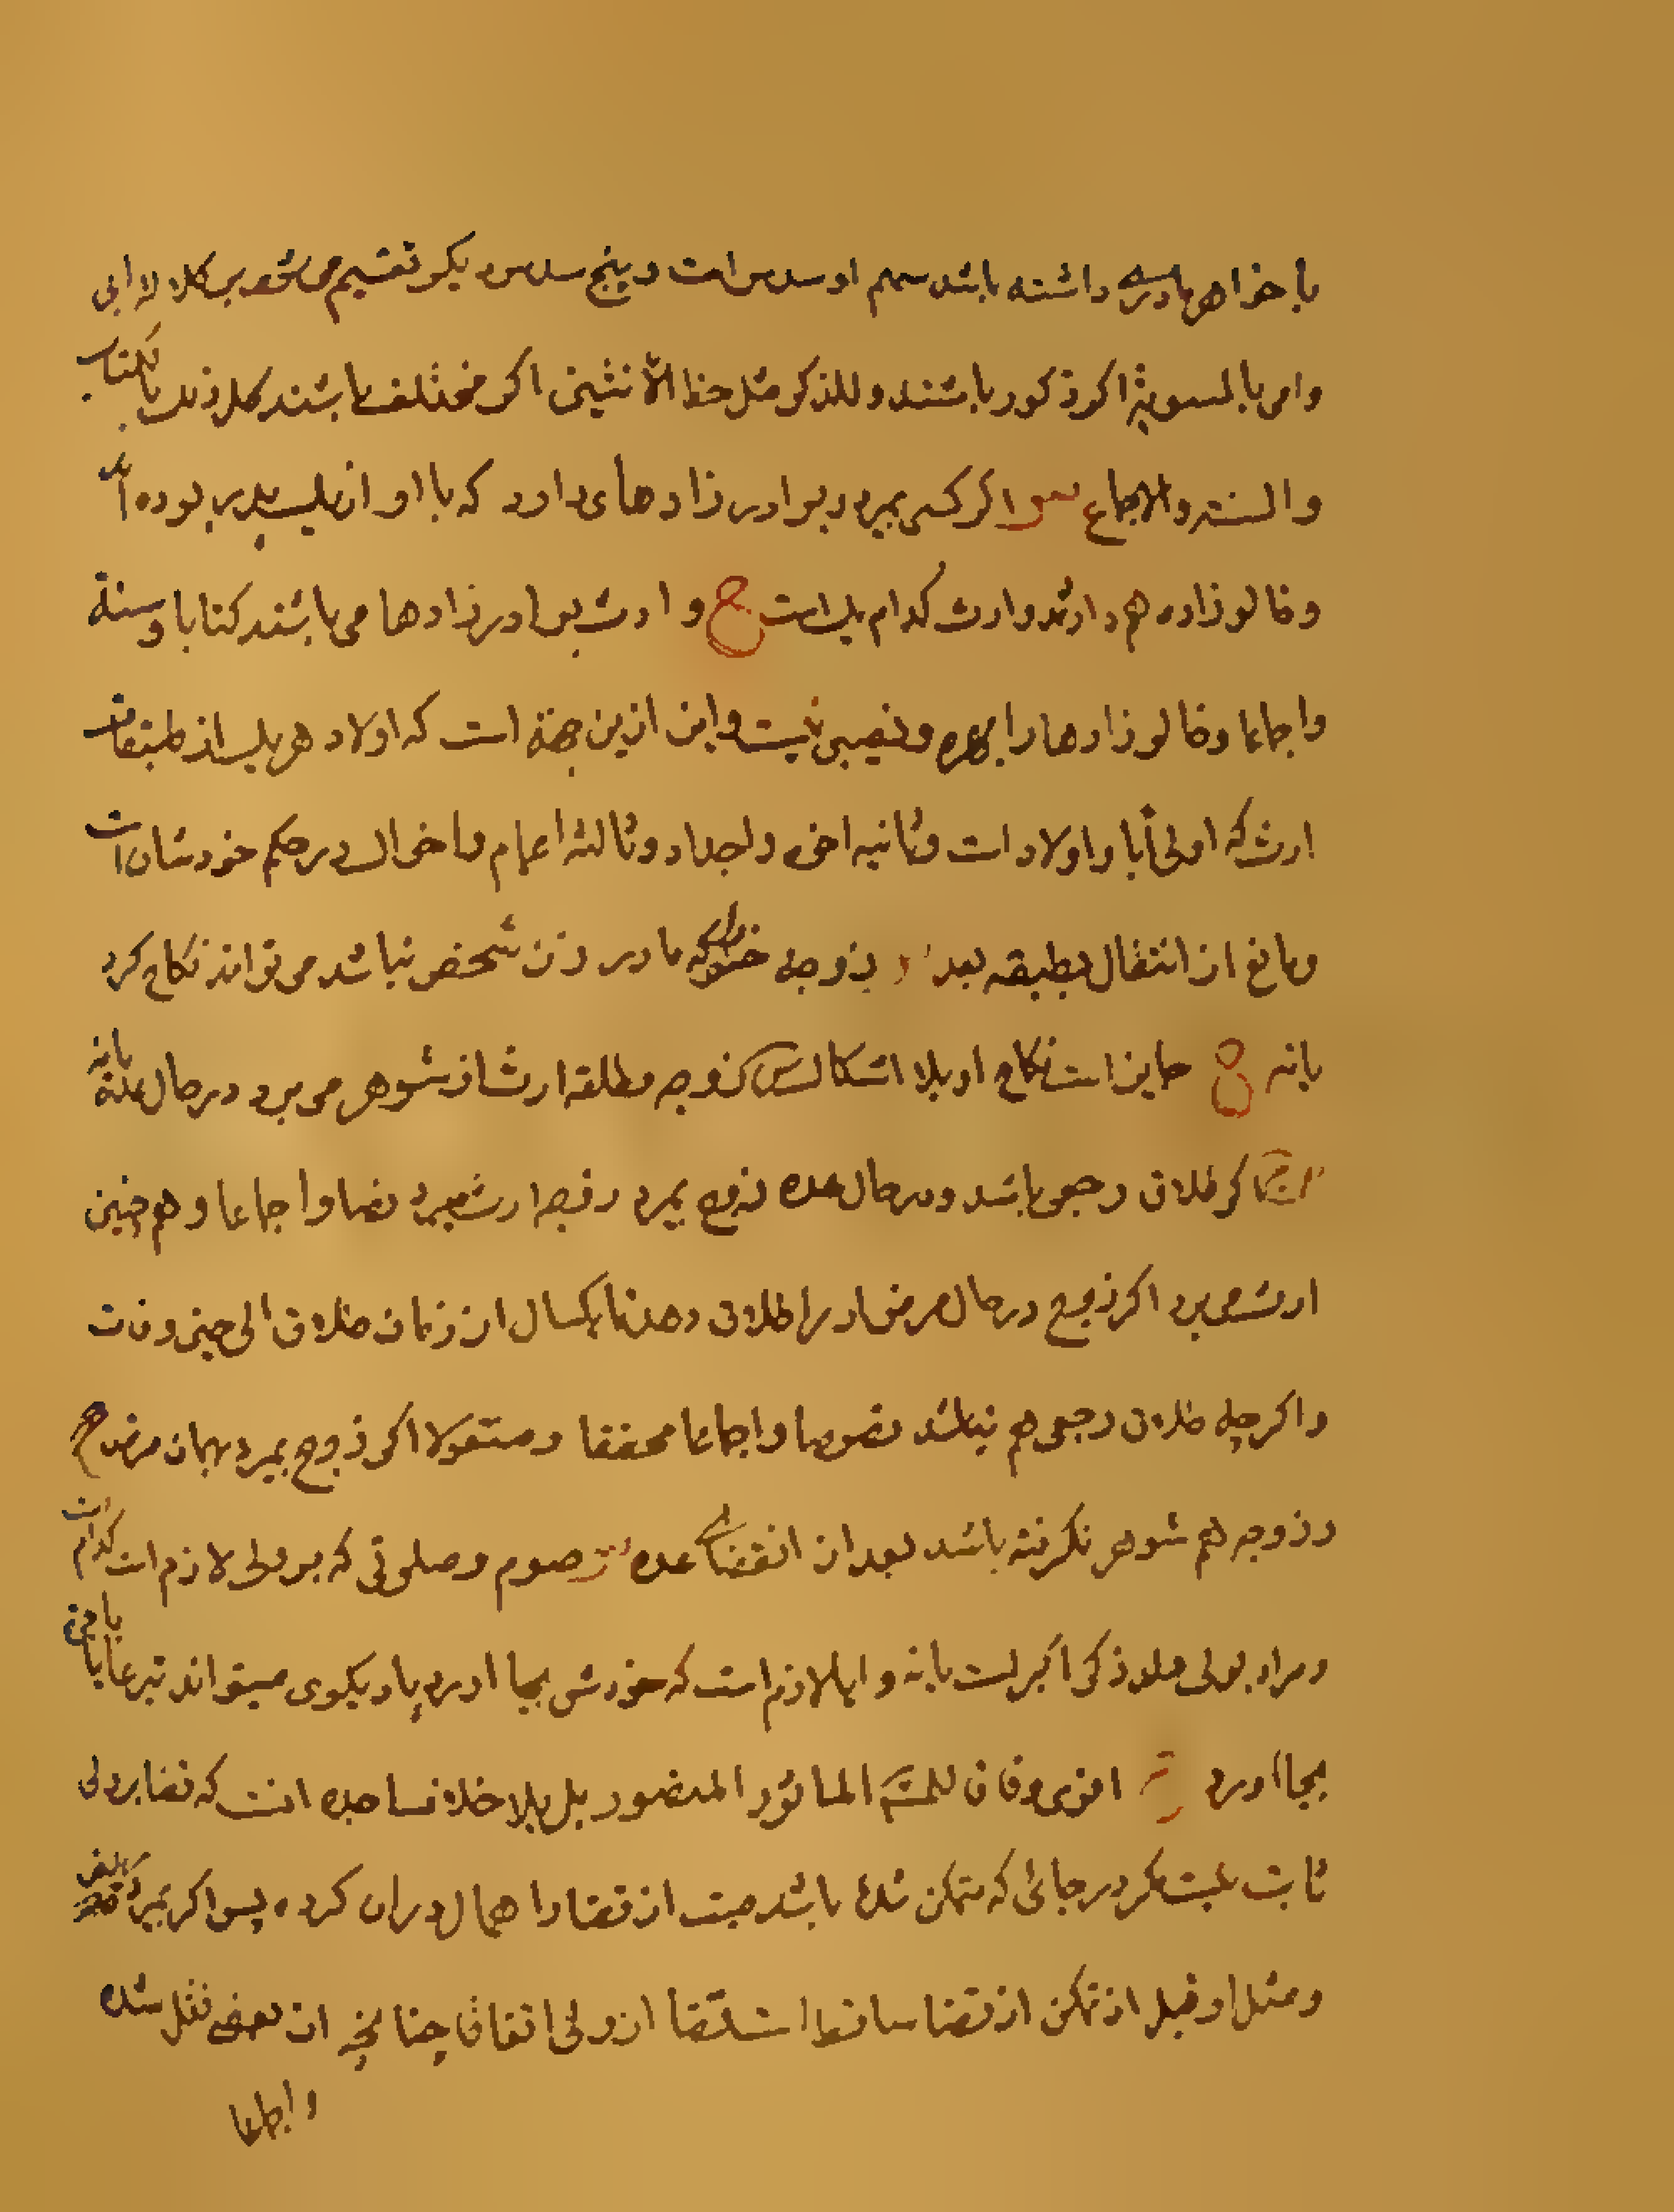 یا خواهر مادری داشته باشد سهم او سدس است و پنج سدس دیگر تقسیم می شود بر کلاله ابی
وامی بالسویة اکر ذکور باشند وللذکر مثل حظ الأنثیین اکر مختلف باشند کل ذلک بالکتاب
والسنة والاجماع س اکر کسی بمیرد و برادر زادهای دارد که با او از یک پدر بوده اند
و خالو زاده هم دارند وارث کدام یک است ج وارث برادر زادها می باشند کتابا وسنة
واجماعا وخالو زادها را بهره و نصیبی نیست واین ازین جهة است که اولاد هر یک از طبقات
ارث که اولی أبا واولاد است وثانیه اخوه واجداد وثالثه اعمام واخوال در حکم خودشان است
ومانع از انتقال بطبقه بعد زوجه خسر که مادر زن شخص نباشد می تواند نکاح کرد
یا نه ج جایز است نکاح او بلا اشکال س زوجه مطلقه ارث از شوهر می برد در حال عده یا نه
ج اکر طلاق رجعی باشد ودر حال عده زوج بمیرد زوجه ارث میبرد نصا واجماعا و هم چنین
ارث می برد اکر زوج در حال مرض او را طلاق دهد تا یکسال از زمان طلاق الی حین وفات
واکر چه طلاق رجعی هم نباشد نصوصا واجماعا محققا ومنقولا اکر زوج بمیرد بهمان مرض
وزوجه هم شوهر نکرفته باشد بعد از انقضای عده س صوم وصلوتی که بر ولی لازم است کدام است
ومراد بولی ولد ذکر اکبر است یا نه وایا لازم است که خودش بجا اورد یا دیکری میتواند تبرعا یا باجرة
بجا اورد ج اقوی وفاقا للمشهور الماثور المنصور بل بلا خلاف اجده انست که قضا بر ولی
ثابت نیست مکر در جائی که متمکن شده باشد میت از قضا واهمال دران کرده پس اکر بمیرد
ومثل او قبل از تمکن از قضا ساقط است قضا از ولی اتفاقا چنانچه از بعضی نقل شده
واجماعا